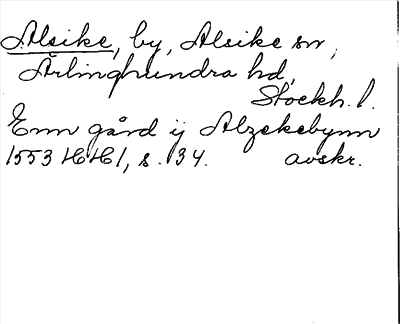 Alsike, by, Alsike sn,
Ärlinghundra hd,
Stockh. l.
Enn gård ij Alzekebynn
1553 HH 1, s. 34. avskr.